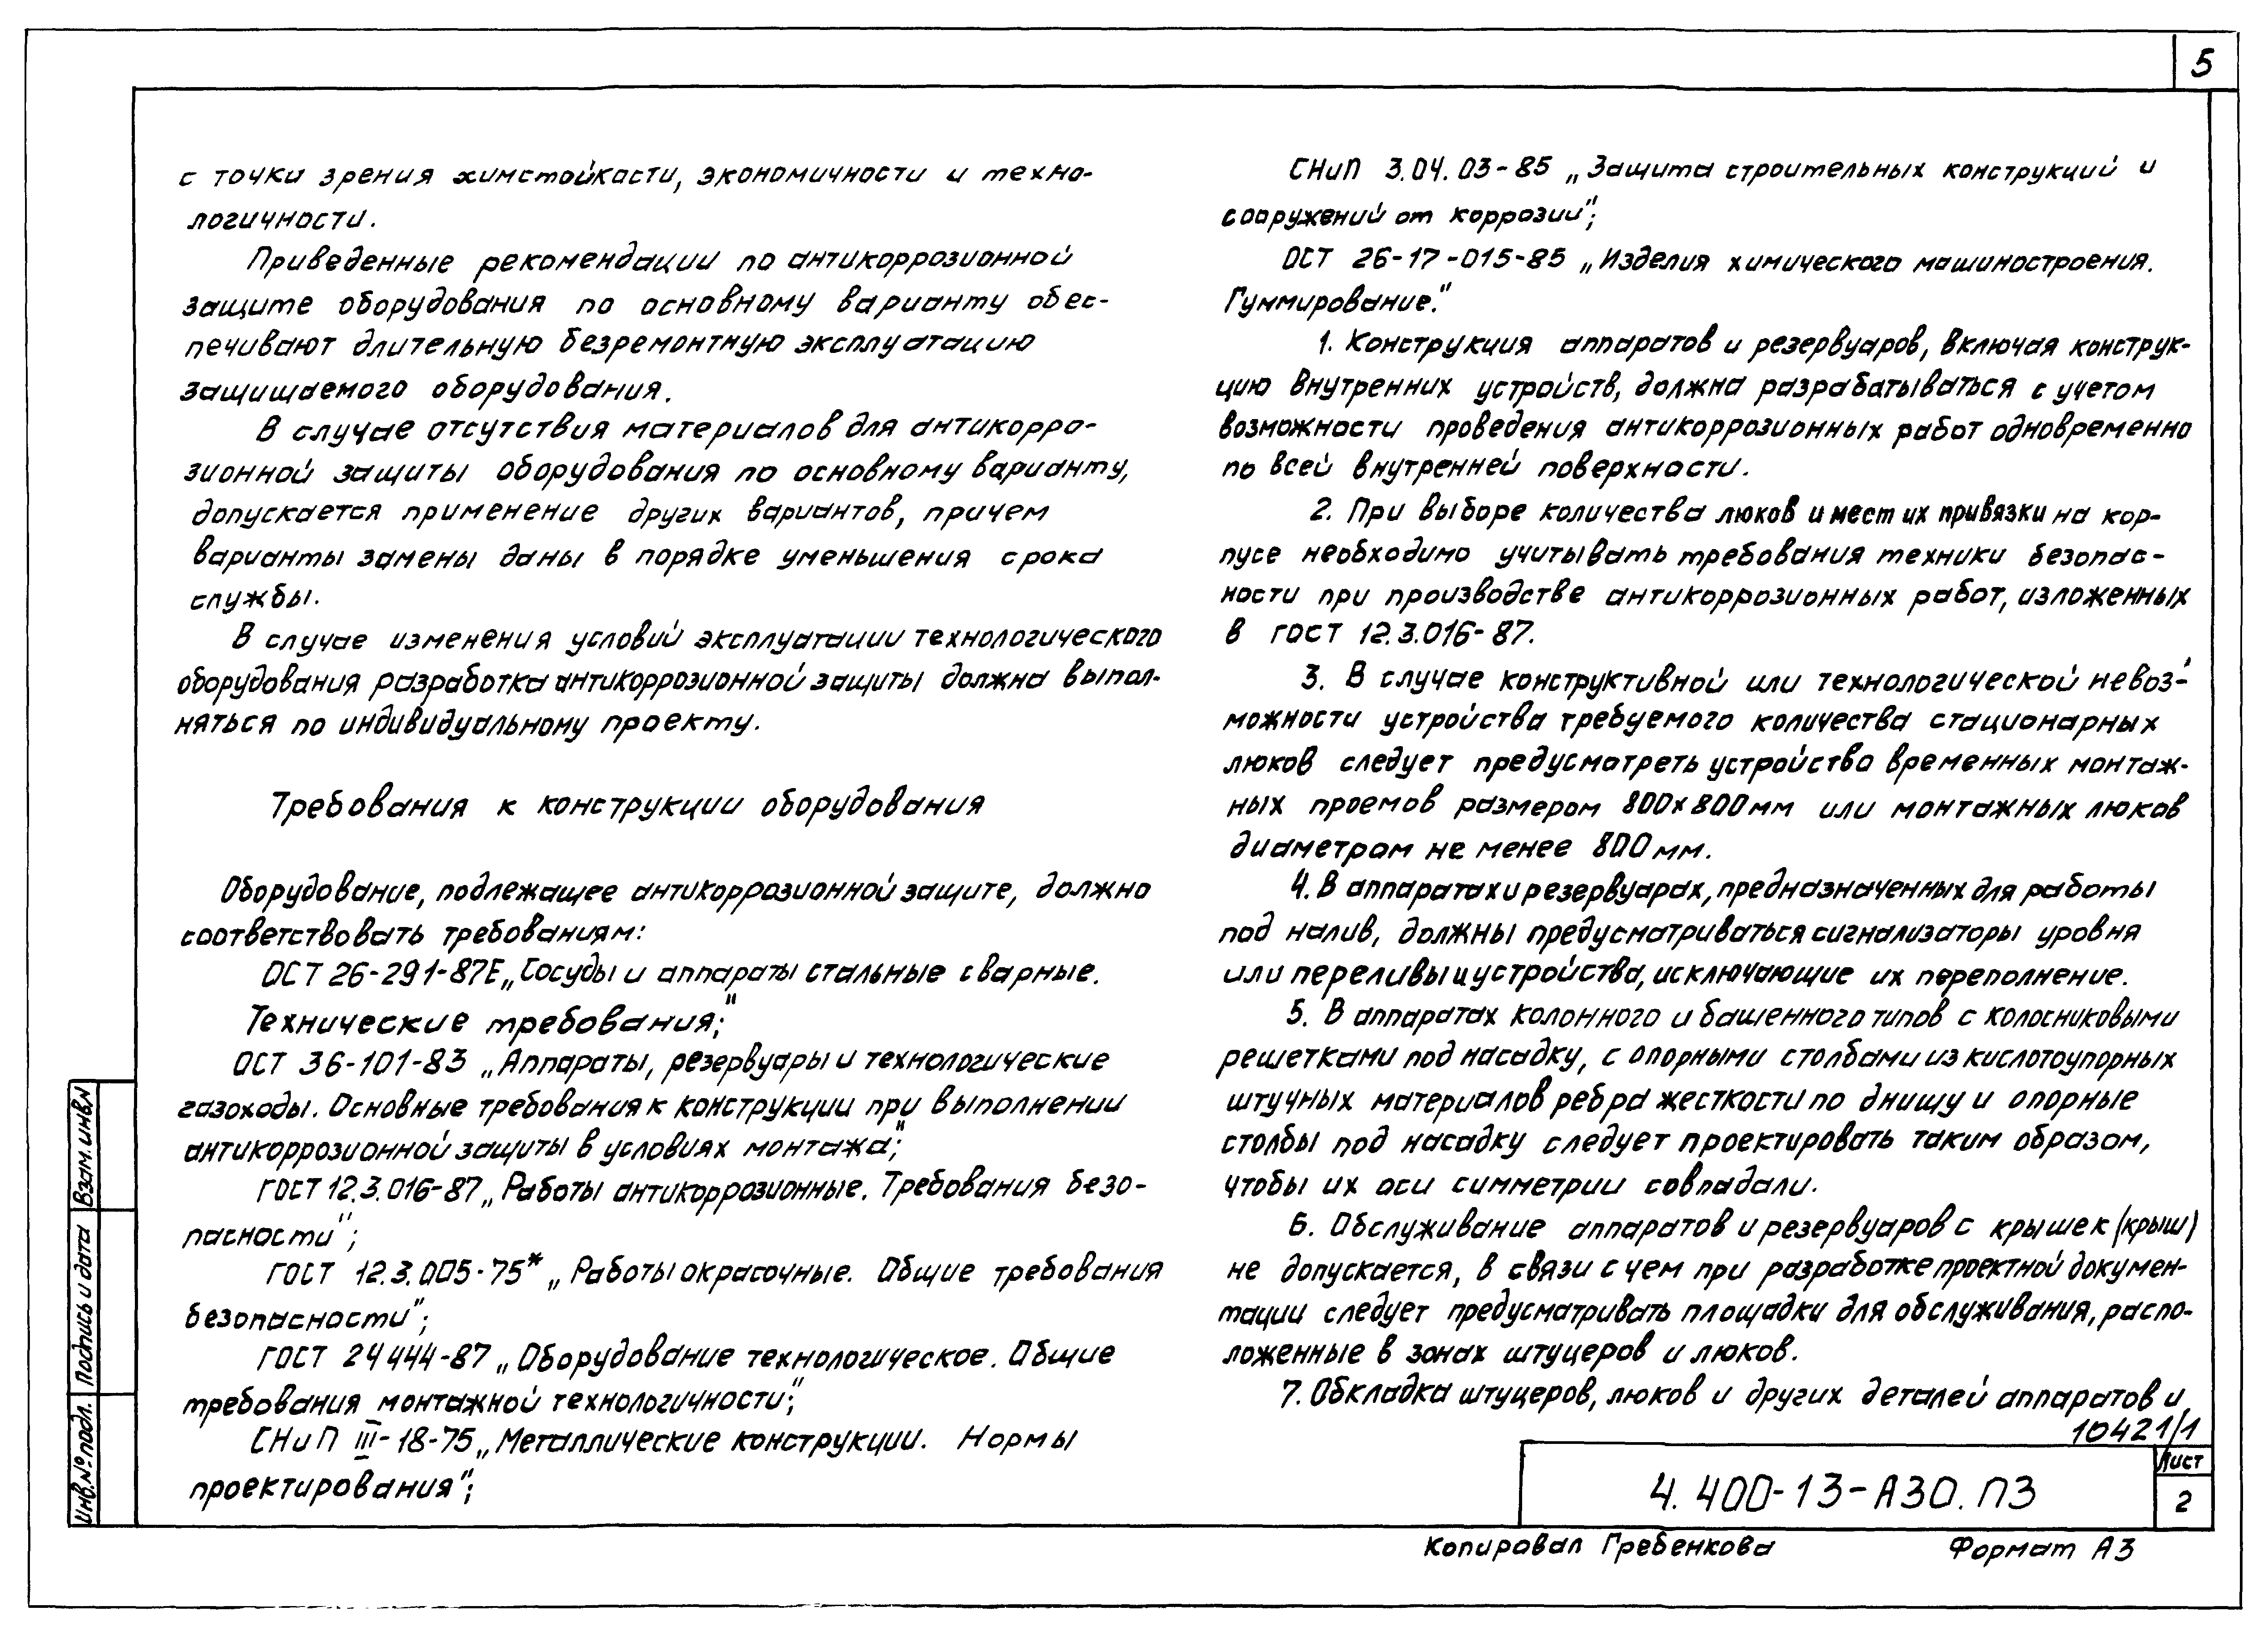 5
с точки зрения химстойкости, экономичности и техно-
логичности.
Приведенные рекомендации по антикоррозионной
защите оборудования по основному варианту обес-
печивают длительную безремонтную эксплуатацию
защищаемого оборудования.
В случае отсутствия материалов для антикорро-
зионной защиты оборудования по основному варианту,
допускается применение других вариантов, причем
варианты замены даны в порядке уменьшения срока
службы.
В случае изменения условий эксплуатации технологического
оборудования разработка антикоррозионной защиты должна выпол-
няться по индивидуальному проекту.
Требования к конструкции оборудования
Оборудование, подлежащее антикоррозионной защите, должно
соответствовать требованиям:
ОСТ 26-291-87Е „Сосуды и аппараты стальные сварные.
Технические требования";
ОСТ 36-101-83 „Аппараты, резервуары и технологические
газоходы. Основные требования к конструкции при выполнении
антикоррозионной защиты в условиях монтажа";
ГОСТ 12.3.016-87 „Работы антикоррозионные. Требования безо-
пасности";
ГОСТ 12.3.005-75* „Работы окрасочные. Общие требования
безопасности";
ГОСТ 24444-87 „Оборудование технологическое. Общие
требования монтажной технологичности";
СНиП III-18-75 „Металлические конструкции. Нормы
проектирования";
СНиП 3.04.03-85 „Защита строительных конструкций и
сооружений от коррозии";
ОСТ 26-17-015-85 „Изделия химического машиностроения.
Гуммирование."
1. Конструкция аппаратов и резервуаров, включая конструк-
цию внутренних устройств, должна разрабатываться с учетом
возможности проведения антикоррозионных работ одновременно
по всей внутренней поверхности.
2. При выборе количества люков и мест их привязки на кор-
пусе необходимо учитывать требования техники безопас-
ности при производстве антикоррозионных работ, изложенных
в ГОСТ 12.3.016-87.
3. В случае конструктивной или технологической невоз-
можности устройства требуемого количества стационарных
люков следует предусмотреть устройство временных монтаж-
ных проемов размером 800х800мм или монтажных люков
диаметром не менее 800мм.
4. В аппаратах и резервуарах, предназначенных для работы
под налив, должны предусматриваться сигнализаторы уровня
или переливы и устройства, исключающие их переполнение.
5. В аппаратах колонного и башенного типов с колосниковыми
решетками под насадку, с опорными столбами из кислотоупорных
штучных материалов ребра жесткости по днищу и опорные
столбы под насадку следует проектировать таким образом,
чтобы их оси симметрии совпадали.
6. Обслуживание аппаратов и резервуаров с крышек (крыш)
не допускается, в связи с чем при разработке проектной докумен-
тации следует предусматривать площадки для обслуживания, распо-
ложенные в зонах штуцеров и люков.
7. Обкладка штуцеров, люков и других деталей аппаратов и
10421/1
4.400-13-АЗО.ПЗ
Лист
2
Копировал Гребенкова
Формат А3
Взам.инв.N
Подпись и дата
Инв.№подл.